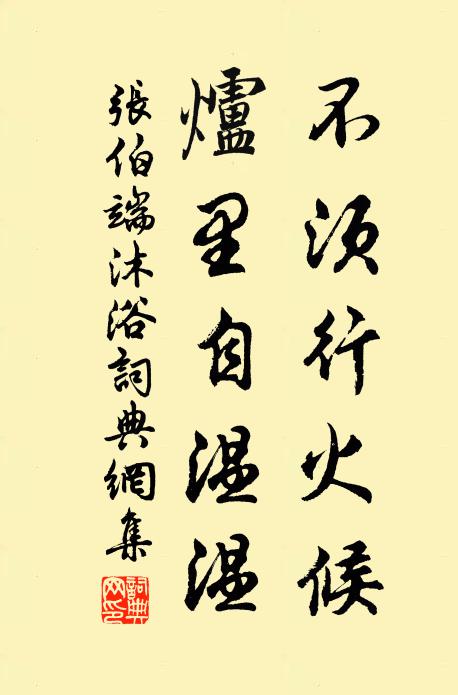 不須行火候
爐里自温温
張伯端沐浴詞典網集
詞典網印